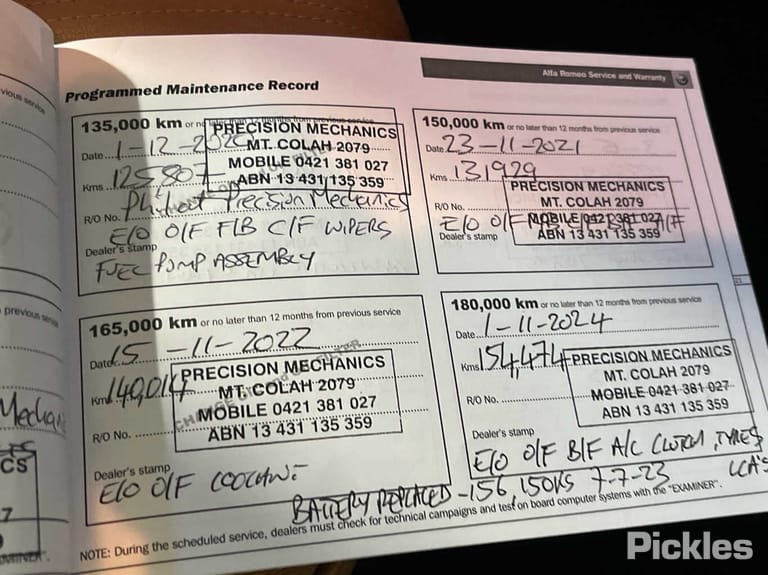 Alfa Romeo Service and Warranty
Programmed Maintenance Record
135,000 km or no later than 12 months from previous service
Date 1-12-2020
Kms 125,807
PRECISION MECHANICS
MT. COLAH 2079
MOBILE 0421 381 027
ABN 13 431 135 359
R/O No. Precision Mechanics
E/O O/F F/B C/F WIPERS
Dealer's stamp
FUEL PUMP ASSEMBLY
150,000 km or no later than 12 months from previous service
Date 23-11-2021
Kms 131929
PRECISION MECHANICS
MT. COLAH 2079
R/O No.
MOBILE 0421 381 027
E/O O/F
Dealer's stamp
ABN 13 431 135 359
165,000 km or no later than 12 months from previous service
Date 15-11-2022
Kms 140,014
PRECISION MECHANICS
MT. COLAH 2079
MOBILE 0421 381 027
ABN 13 431 135 359
R/O No.
Dealer's stamp
E/O O/F COOLANT
180,000 km or no later than 12 months from previous service
Date 1-11-2024
Kms 154,474
PRECISION MECHANICS
MT. COLAH 2079
MOBILE 0421 381 027
ABN 13 431 135 359
R/O No.
Dealer's stamp
E/O O/F B/F A/C CLUTCH, TYRES
LCA'S
BATTERY REPLACED -156,150KS 7-7-23
NOTE: During the scheduled service, dealers must check for technical campaigns and test on board computer systems with the "EXAMINER".
vious service
previous service
Mechani
CS
7
Pickles